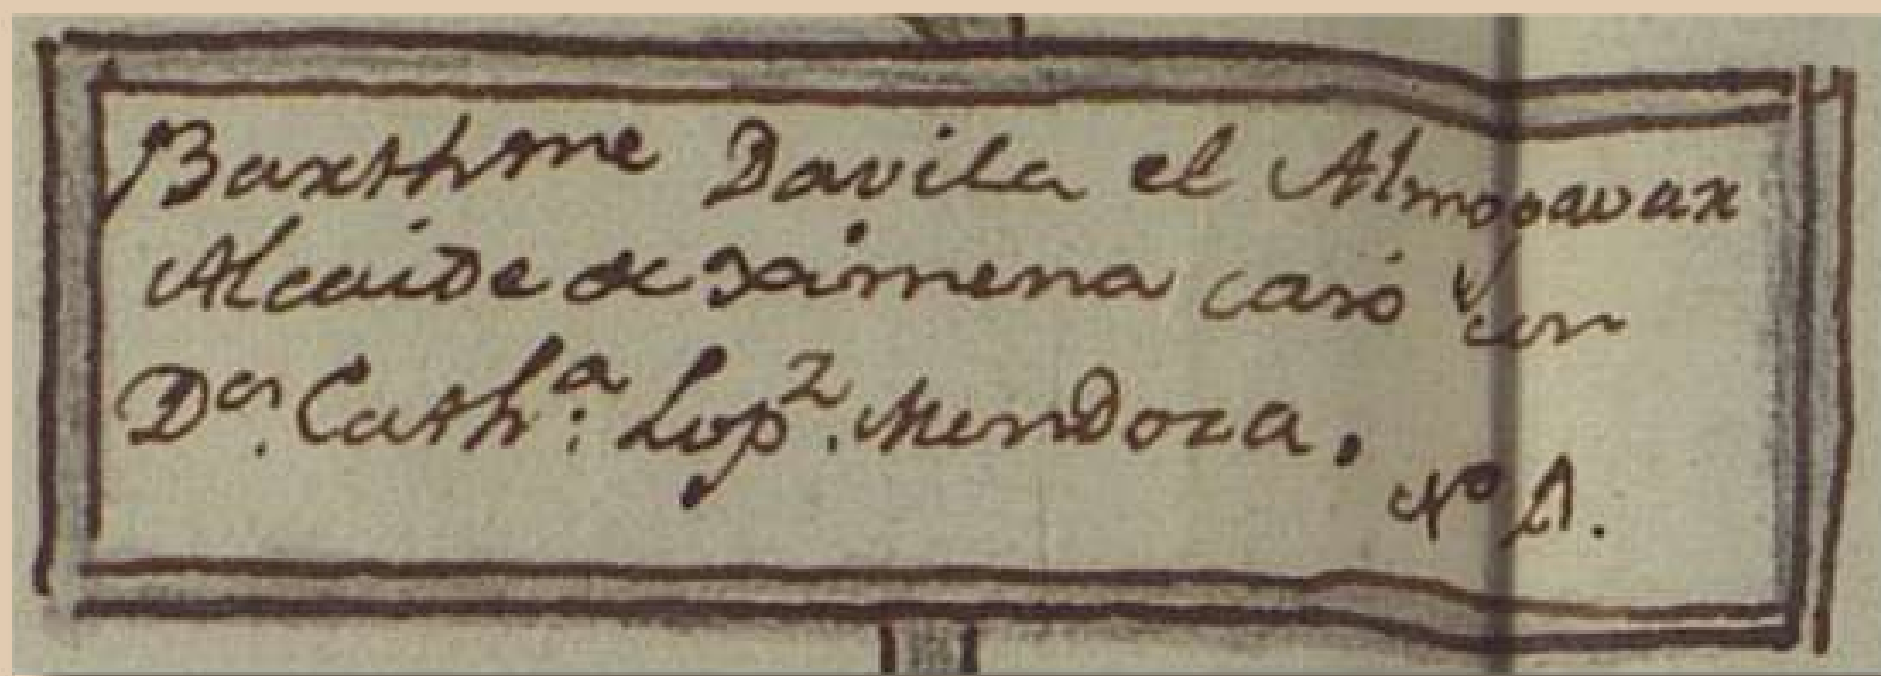 Barthme Davila el Almogavar
Alcaide de Ximena casó con
Dª. Cathª: Lopz. Mendoza.